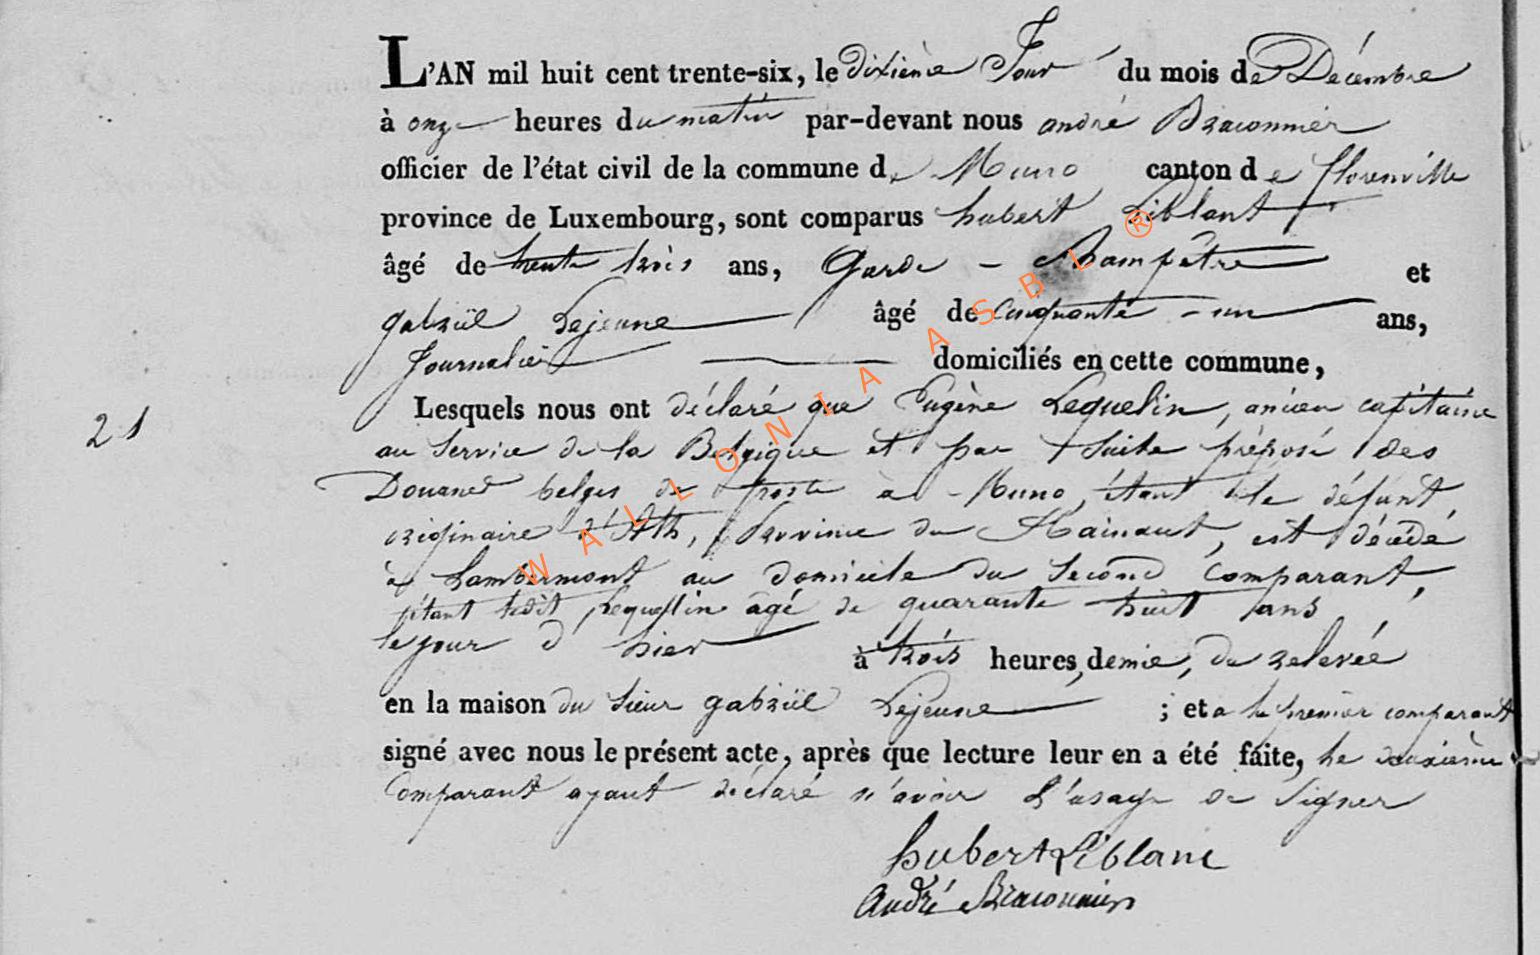 L'AN mil huit cent trente-six, le dixième Jour du mois de Décembre
à onze heures du matin par-devant nous andré Braconnier
officier de l'état civil de la commune de Muno canton de florenville
province de Luxembourg, sont comparus hubert Liblant
âgé de trente trois ans, Garde - Champêtre et
gabriël Lejeune âgé de cinquante - un ans,
Journalier domiciliés en cette commune,
Lesquels nous ont déclaré que Eugène Lequelin, ancien capitaine
21
au service de la Belgique et par suite préposé des
Douanes belges de poste à Muno, étant le défunt
originaire d'Ath, Province du Hainaut, est décédé
à Lambermont au domicile du second comparant,
étant ledit Lequelin âgé de quarante huit ans
le jour d'hier à trois heures, demie, de relevée
en la maison du sieur gabriël Lejeune ; et a le premier comparant
signé avec nous le présent acte, après que lecture leur en a été faite, le deuxième
comparant ayant déclaré n'avoir l'usage de signer
hubert Liblanc
André Braconnier
WALLONIA ASBL ®